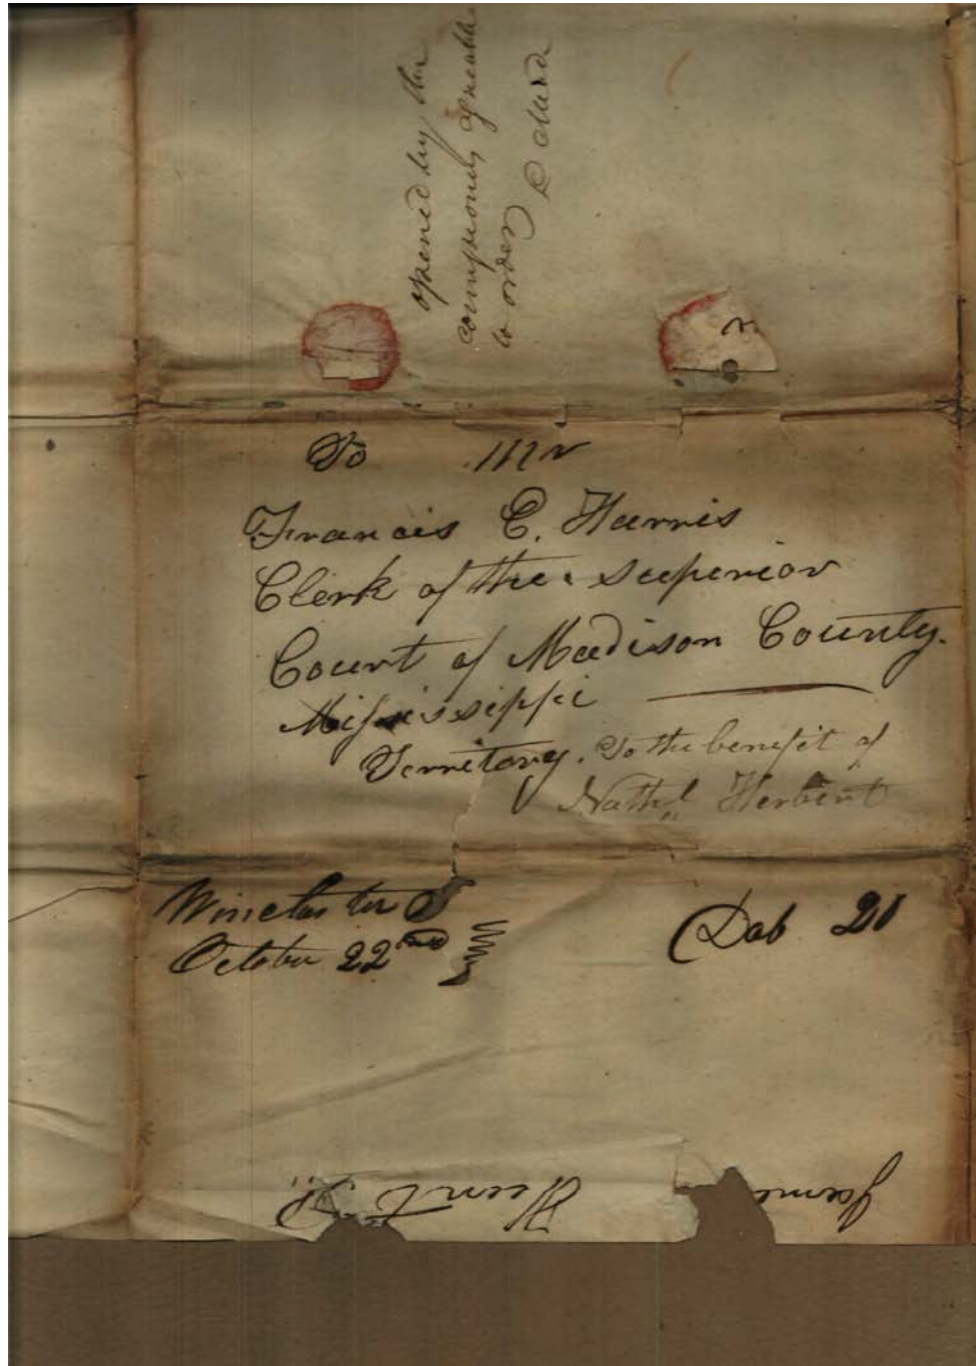 opened by the
agreeable
to order
To Mr
Francis E. Harris
Clerk of the Superior
Court of Madison County.
Mississippi
Territory. To the benefit of
Nathl Herbert
Winchester
October 22nd
20
Hunt